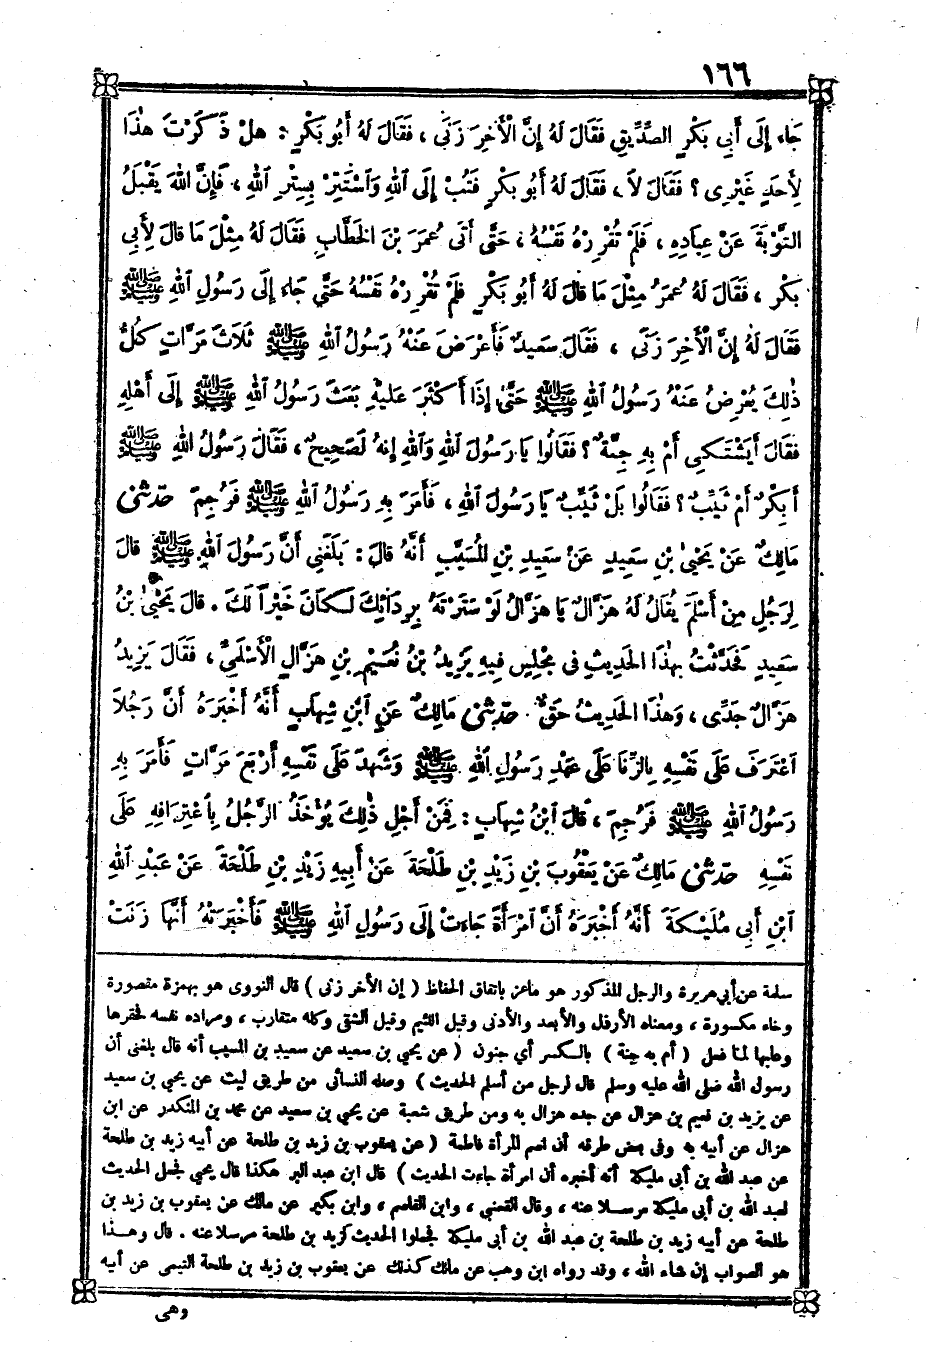 ١٦٦
جَاءَ إِلَى أَبِي بَكْرٍ الصِّدِّيقِ فَقَالَ لَهُ إِنَّ الْأَخِرَ زَنَى ، فَقَالَ لَهُ أَبُو بَكْرٍ : هَلْ ذَكَرْتَ هٰذَا
لِأَحَدٍ غَيْرِى ؟ فَقَالَ لاَ ، فَقَالَ لَهُ أَبُو بَكْرٍ فَتُبْ إِلَى اللهِ وَاسْتَتِرْ بِسِتْرِ اللهِ ، فَإِنَّ اللهَ يَقْبَلُ
التَّوْبَةَ عَنْ عِبَادِهِ ، فَلَمْ تُقْرِرْهُ نَفْسُهُ ، حَتَّى أَتَى عُمَرَ بْنَ الخَطَّابِ فَقَالَ لَهُ مِثْلَ مَا قَالَ لِأَبِى
بَكْرٍ ، فَقَالَ لَهُ عُمَرُ مِثْلَ مَا قَالَ لَهُ أَبُو بَكْرٍ فَلَمْ تُقْرِرْهُ نَفْسُهُ حَتَّى جَاءَ إِلَى رَسُولِ اللهِ ﷺ
فَقَالَ لَهُ إِنَّ الْأَخِرَ زَنَى ، فَقَالَ سَعِيدٌ فَأَعْرَضَ عَنْهُ رَسُولُ اللهِ ﷺ ثَلَاثَ مَرَّاتٍ كُلُّ
ذٰلِكَ يُعْرِضُ عَنْهُ رَسُولُ اللهِ ﷺ حَتَّى إِذَا أَكْثَرَ عَلَيْهِ بَعَثَ رَسُولُ اللهِ ﷺ إِلَى أَهْلِهِ
فَقَالَ أَيَشْتَكِى أَمْ بِهِ جِنَّةٌ ؟ فَقَالُوا يَا رَسُولَ اللهِ وَاللهِ إِنَّهُ لَصَحِيحٌ ، فَقَالَ رَسُولُ اللهِ ﷺ
أَبِكْرٌ أَمْ ثَيِّبٌ ؟ فَقَالُوا بَلْ ثَيِّبٌ يَا رَسُولَ اللهِ ، فَأَمَرَ بِهِ رَسُولُ اللهِ ﷺ فَرُجِمَ حَدَّثَنِى
مَالِكٌ عَنْ يَحْيَىٰ بْنِ سَعِيدٍ عَنْ سَعِيدِ بْنِ الْمُسَيَّبِ أَنَّهُ قَالَ : بَلَغَنِى أَنَّ رَسُولَ اللهِ ﷺ قَالَ
لِرَجُلٍ مِنْ أَسْلَمَ يُقَالُ لَهُ هَزَّالٌ يَا هَزَّالُ لَوْ سَتَرْتَهُ بِرِدَائِكَ لَكَانَ خَيْراً لَكَ . قَالَ يَحْيَىٰ بْنُ
سَعِيدٍ فَحَدَّثْتُ بِهٰذَا الحَدِيثِ فِى مَجْلِسٍ فِيهِ يَزِيدُ بْنُ نُعَيْمِ بْنِ هَزَّالٍ الْأَسْلَمِىِّ ، فَقَالَ يَزِيدُ
هَزَّالٌ جَدِّى ، وَهٰذَا الحَدِيثُ حَقٌّ . حَدَّثَنِى مَالِكٌ عَنِ ابْنِ شِهَابٍ أَنَّهُ أَخْبَرَهُ أَنَّ رَجُلاً
اعْتَرَفَ عَلَى نَفْسِهِ بِالزِّنَا عَلَى عَهْدِ رَسُولِ اللهِ ﷺ وَشَهِدَ عَلَى نَفْسِهِ أَرْبَعَ مَرَّاتٍ فَأَمَرَ بِهِ
رَسُولُ اللهِ ﷺ فَرُجِمَ ، قَالَ ابْنُ شِهَابٍ : فَمِنْ أَجْلِ ذٰلِكَ يُؤْخَذُ الرَّجُلُ بِاعْتِرَافِهِ عَلَى
نَفْسِهِ حَدَّثَنِى مَالِكٌ عَنْ يَعْقُوبَ بْنِ زَيْدِ بْنِ طَلْحَةَ عَنْ أَبِيهِ زَيْدِ بْنِ طَلْحَةَ عَنْ عَبْدِ اللهِ
ابْنِ أَبِى مُلَيْكَةَ أَنَّهُ أَخْبَرَهُ أَنَّ امْرَأَةً جَاءَتْ إِلَى رَسُولِ اللهِ ﷺ فَأَخْبَرَتْهُ أَنَّهَا زَنَتْ
سلمة عن أبى هريرة والرجل المذكور هو ماعز باتفاق الحفاظ ( إن الأخر زنى ) قال النووى هو بهمزة مقصورة
وخاء مكسورة ، ومعناه الأرذل والأبعد والأدنى وقيل اللئيم وقيل الشقى وكله متقارب ، ومراده نفسه فحقرها
وعابها لما فعل ( أم به جنة ) بالكسر أي جنون ( عن يحيى بن سعيد عن سعيد بن المسيب أنه قال بلغنى أن
رسول الله صلى الله عليه وسلم قال لرجل من أسلم الحديث ) وصله النسائى من طريق ليث عن يحيى بن سعيد
عن يزيد بن نعيم بن هزال عن جده هزال به ومن طريق شعبة عن يحيى بن سعيد عن محمد بن المنكدر عن ابن
هزال عن أبيه به وفى بعض طرقه أن اسم المرأة فاطمة ( عن يعقوب بن زيد بن طلحة عن أبيه زيد بن طلحة
عن عبد الله بن أبى مليكة أنه أخبره أن امرأة جاءت الحديث ) قال ابن عبد البر هكذا قال يحيى فجعل الحديث
لعبد الله بن أبى مليكة مرسلا عنه ، وقال القعنبي ، وابن القاسم ، وابن بكير عن مالك عن يعقوب بن زيد بن
طلحة عن أبيه زيد بن طلحة بن عبد الله بن أبى مليكة فجعلوا الحديث لزيد بن طلحة مرسلا عنه . قال وهـذا
هو الصواب إن شاء الله ، وقد رواه ابن وهب عن مالك كذلك عن يعقوب بن زيد بن طلحة التيمى عن أبيه
وهى